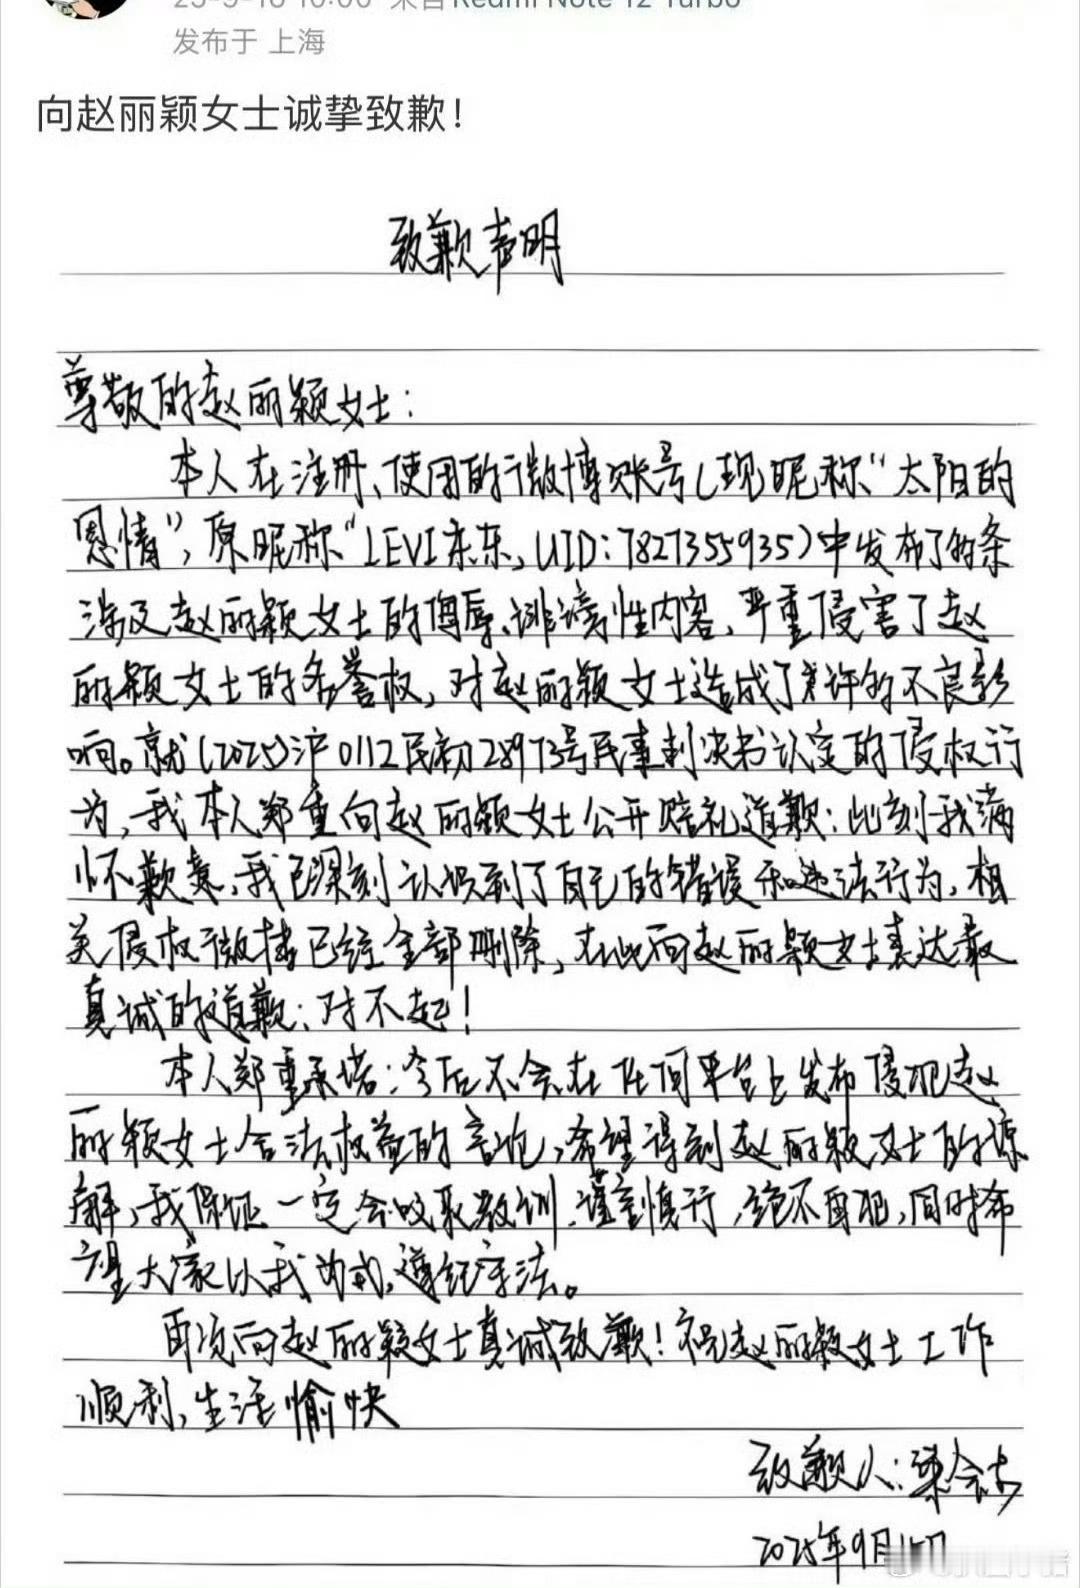 25-9-16 10:00 来自 Redmi Note 12 Turbo
发布于 上海
向赵丽颖女士诚挚致歉！
致歉声明
尊敬的赵丽颖女士：
本人在注册、使用的微博账号（现昵称“太阳的
恩情”，原昵称“LEVI东东，UID：7827355935）中发布了的条
涉及赵丽颖女士的侮辱、诽谤性内容，严重侵害了赵
丽颖女士的名誉权，对赵丽颖女士造成了的不良影
响。就（2025）沪0112民初28973号民事判决书认定的侵权行
为，我本人郑重向赵丽颖女士公开赔礼道歉：此刻我满
怀歉意，我已深刻认识到了自己的错误和违法行为，相
关侵权微博已经全部删除，在此向赵丽颖女士表达最
真诚的道歉：对不起！
本人郑重承诺：今后不会在任何平台上发布侵犯赵
丽颖女士合法权益的言论，希望得到赵丽颖女士的谅
解，我保证一定会吸取教训、谨言慎行，绝不再犯，同时希
望大家以我为戒，遵纪守法。
再次向赵丽颖女士真诚致歉！祝赵丽颖女士工作
顺利，生活愉快
致歉人：梁会
2025年9月15日